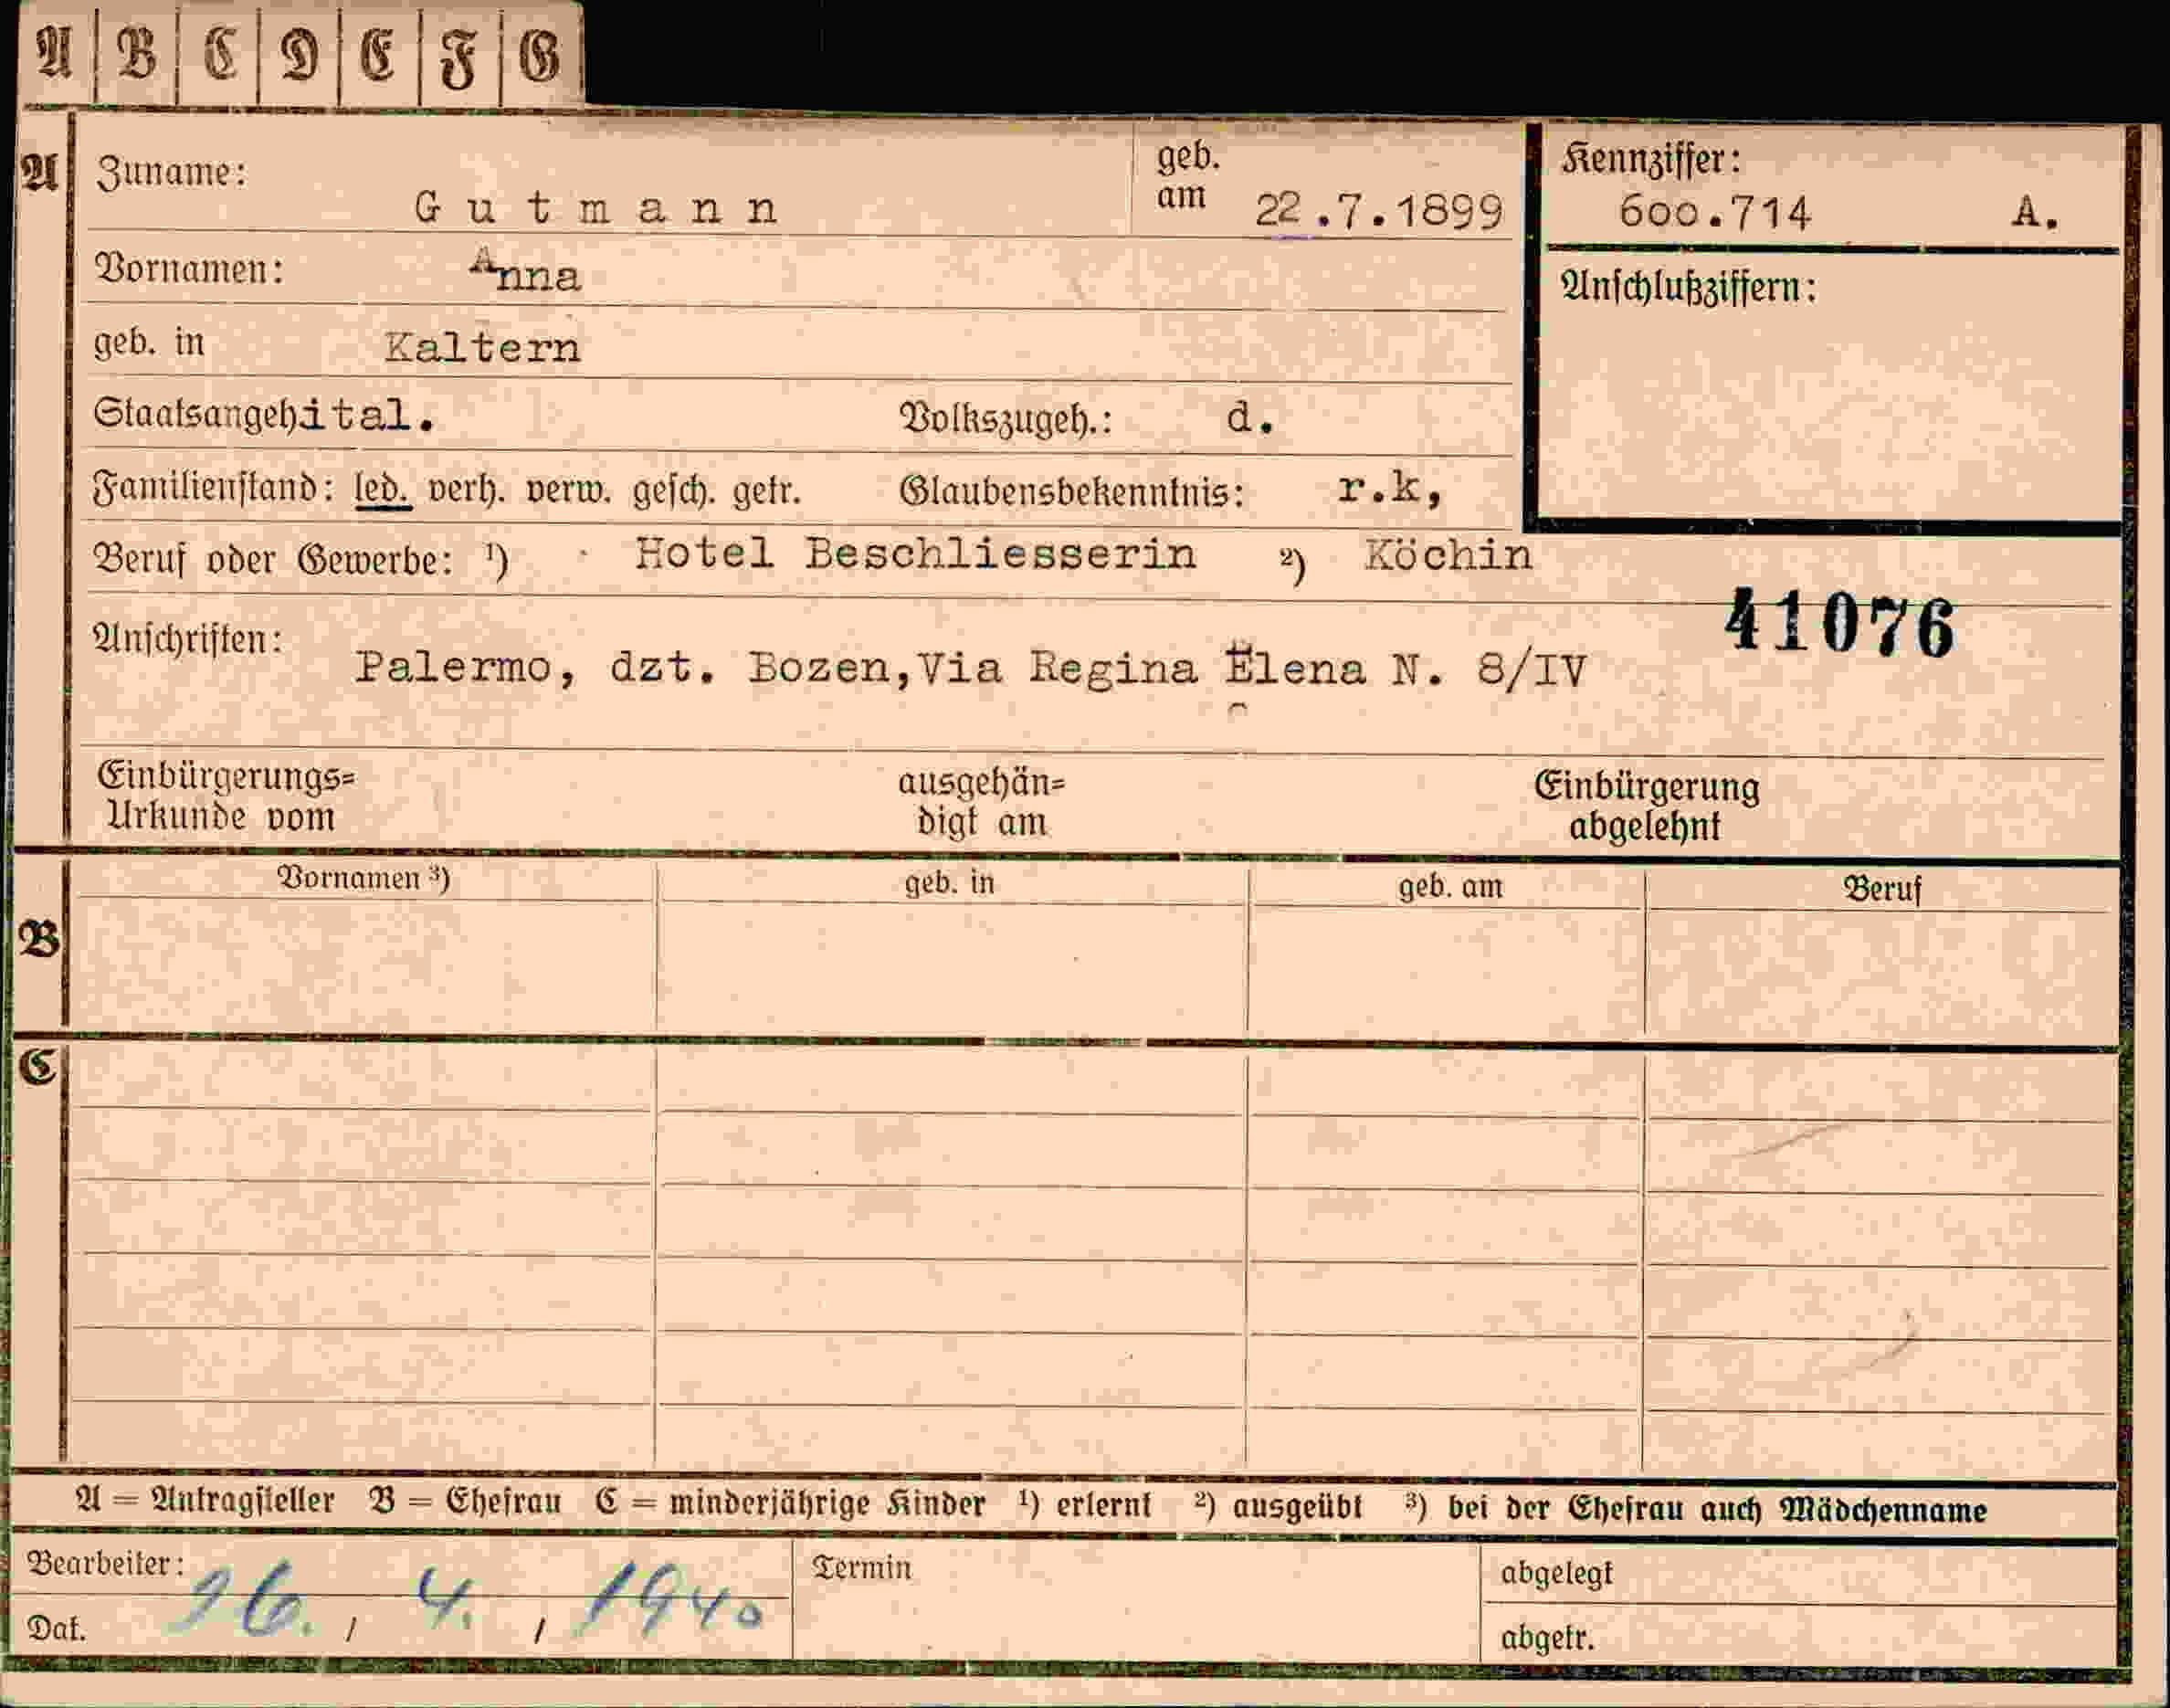 A B C D E F G
A Zuname: Gutmann geb. am 22.7.1899 Kennziffer: 600.714 A.
Vornamen: Anna Anschlußziffern:
geb. in Kaltern
Staatsangeh ital. Volkszugeh.: d.
Familienstand: led. verh. verw. gesch. getr. Glaubensbekenntnis: r.k,
Beruf oder Gewerbe: ¹) Hotel Beschliesserin ²) Köchin
41076
Anschriften: Palermo, dzt. Bozen,Via Regina Elena N. 8/IV
Einbürgerungs= ausgehän= Einbürgerung
Urkunde vom digt am abgelehnt
Vornamen ³) geb. in geb. am Beruf
B
C
A = Antragsteller B = Ehefrau C = minderjährige Kinder ¹) erlernt ²) ausgeübt ³) bei der Ehefrau auch Mädchenname
Bearbeiter: Termin abgelegt
Dat. 26. / 4. / 1940 abgetr.